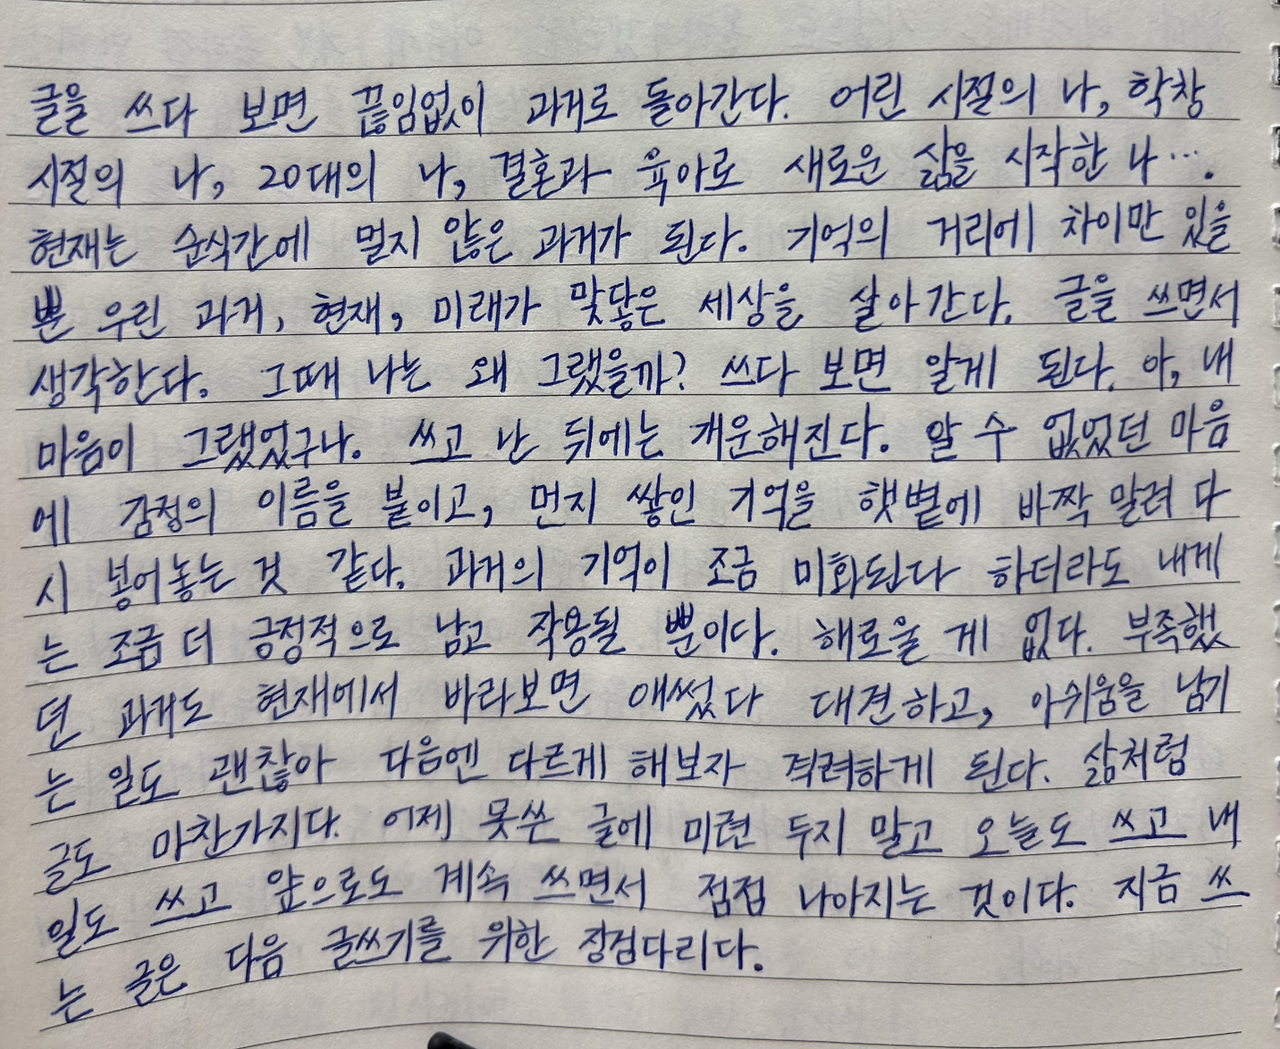 글을 쓰다 보면 끊임없이 과거로 돌아간다. 어린 시절의 나, 학창
시절의 나, 20대의 나, 결혼과 육아로 새로운 삶을 시작한 나….
현재는 순식간에 멀지 않은 과거가 된다. 기억의 거리에 차이만 있을
뿐 우린 과거, 현재, 미래가 맞닿은 세상을 살아간다. 글을 쓰면서
생각한다. 그때 나는 왜 그랬을까? 쓰다 보면 알게 된다. 아, 내
마음이 그랬었구나. 쓰고 난 뒤에는 개운해진다. 알 수 없었던 마음
에 감정의 이름을 붙이고, 먼지 쌓인 기억을 햇볕에 바짝 말려 다
시 넣어놓는 것 같다. 과거의 기억이 조금 미화된다 하더라도 내게
는 조금 더 긍정적으로 남고 작용될 뿐이다. 해로울 게 없다. 부족했
던 과거도 현재에서 바라보면 애썼다 대견하고, 아쉬움을 남기
는 일도 괜찮아 다음엔 다르게 해보자 격려하게 된다. 삶처럼
글도 마찬가지다. 어제 못쓴 글에 미련 두지 말고 오늘도 쓰고 내
일도 쓰고 앞으로도 계속 쓰면서 점점 나아지는 것이다. 지금 쓰
는 글은 다음 글쓰기를 위한 징검다리다.